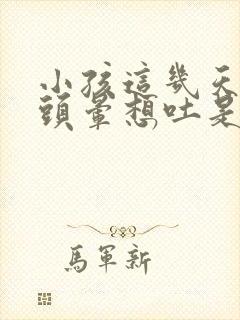 小孩這幾天
頭暈想吐是
馬軍新